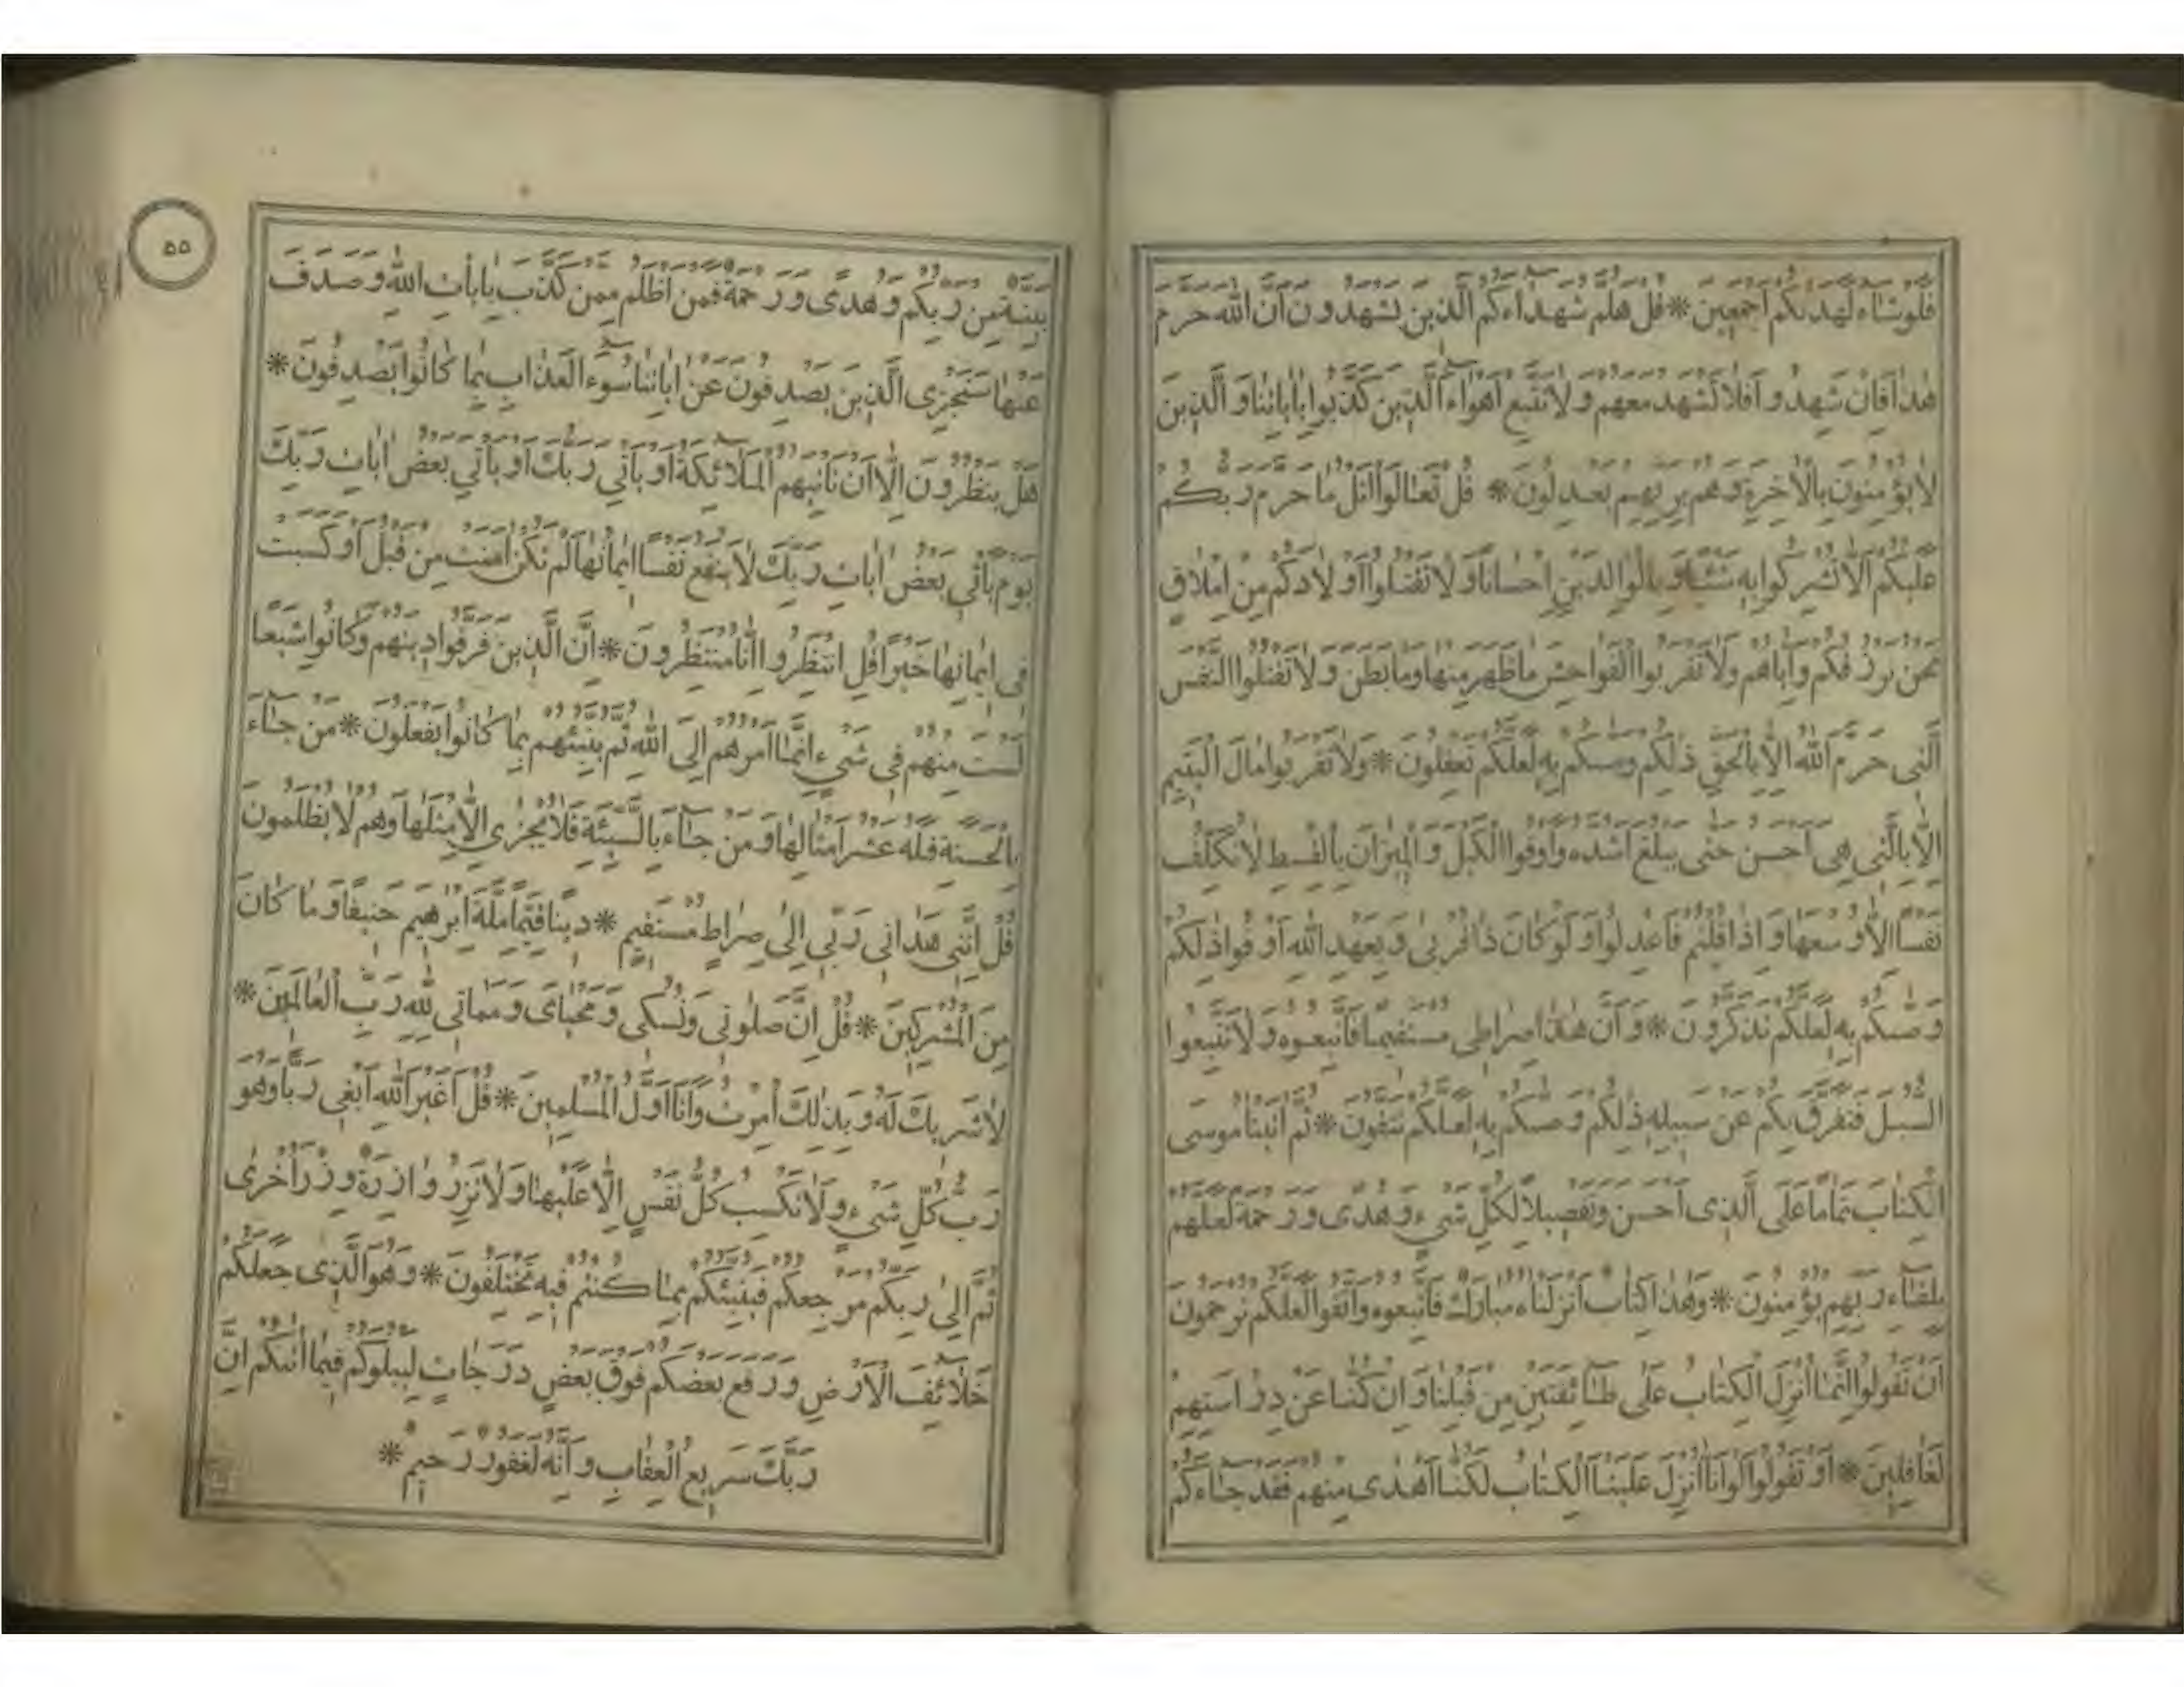 فلوشاء لهدىكم اجمعين * قل هلم شهداءكم الذين يشهدون ان الله حرم
هذا فان شهدوا فلا تشهد معهم ولا تتبع اهواء الذين كذبوا باياتنا والذين
لا يؤمنون بالاخرة وهم بربهم يعدلون * قل تعالوا اتل ما حرم ربكم
عليكم الا تشركوا به شيئا وبالوالدين احسانا ولا تقتلوا اولادكم من املاق
نحن نرزقكم واياهم ولا تقربوا الفواحش ما ظهر منها وما بطن ولا تقتلوا النفس
التى حرم الله الا بالحق ذلكم وصىكم به لعلكم تعقلون * ولا تقربوا مال اليتيم
الا بالتى هى احسن حتى يبلغ اشده واوفوا الكيل والميزان بالقسط لا نكلف
نفسا الا وسعها واذا قلتم فاعدلوا ولو كان ذا قربى وبعهد الله اوفوا ذلكم
وصىكم به لعلكم تذكرون * وان هذا صراطى مستقيما فاتبعوه ولا تتبعوا
السبل فتفرق بكم عن سبيله ذلكم وصىكم به لعلكم تتقون * ثم اتينا موسى
الكتاب تماما على الذى احسن وتفصيلا لكل شىء وهدى ورحمة لعلهم
بلقاء ربهم يؤمنون * وهذا كتاب انزلناه مبارك فاتبعوه واتقوا لعلكم ترحمون
ان تقولوا انما انزل الكتاب على طائفتين من قبلنا وان كنا عن دراستهم
لغافلين * او تقولوا لو انا انزل علينا الكتاب لكنا اهدى منهم فقد جاءكم
۵۵
بينة من ربكم وهدى ورحمة فمن اظلم ممن كذب بايات الله وصدف
عنها سنجزى الذين يصدفون عن اياتنا سوء العذاب بما كانوا يصدفون *
هل ينظرون الا ان تاتيهم الملائكة او ياتي ربك او ياتي بعض ايات ربك
يوم ياتي بعض ايات ربك لا ينفع نفسا ايمانها لم تكن امنت من قبل او كسبت
فى ايمانها خيرا قل انتظروا انا منتظرون * ان الذين فرقوا دينهم وكانوا شيعا
لست منهم فى شىء انما امرهم الى الله ثم ينبئهم بما كانوا يفعلون * من جاء
بالحسنة فله عشر امثالها ومن جاء بالسيئة فلا يجزى الا مثلها وهم لا يظلمون
قل اننى هدانى ربى الى صراط مستقيم * دينا قيما ملة ابرهيم حنيفا وما كان
من المشركين * قل ان صلوتى ونسكى ومحياى ومماتى لله رب العالمين *
لا شريك له وبذلك امرت وانا اول المسلمين * قل اغير الله ابغى ربا وهو
رب كل شىء ولا تكسب كل نفس الا عليها ولا تزر وازرة وزر اخرى
ثم الى ربكم مرجعكم فينبئكم بما كنتم فيه تختلفون * وهو الذى جعلكم
خلائف الارض ورفع بعضكم فوق بعض درجات ليبلوكم فيما اتىكم ان
ربك سريع العقاب وانه لغفور رحيم *